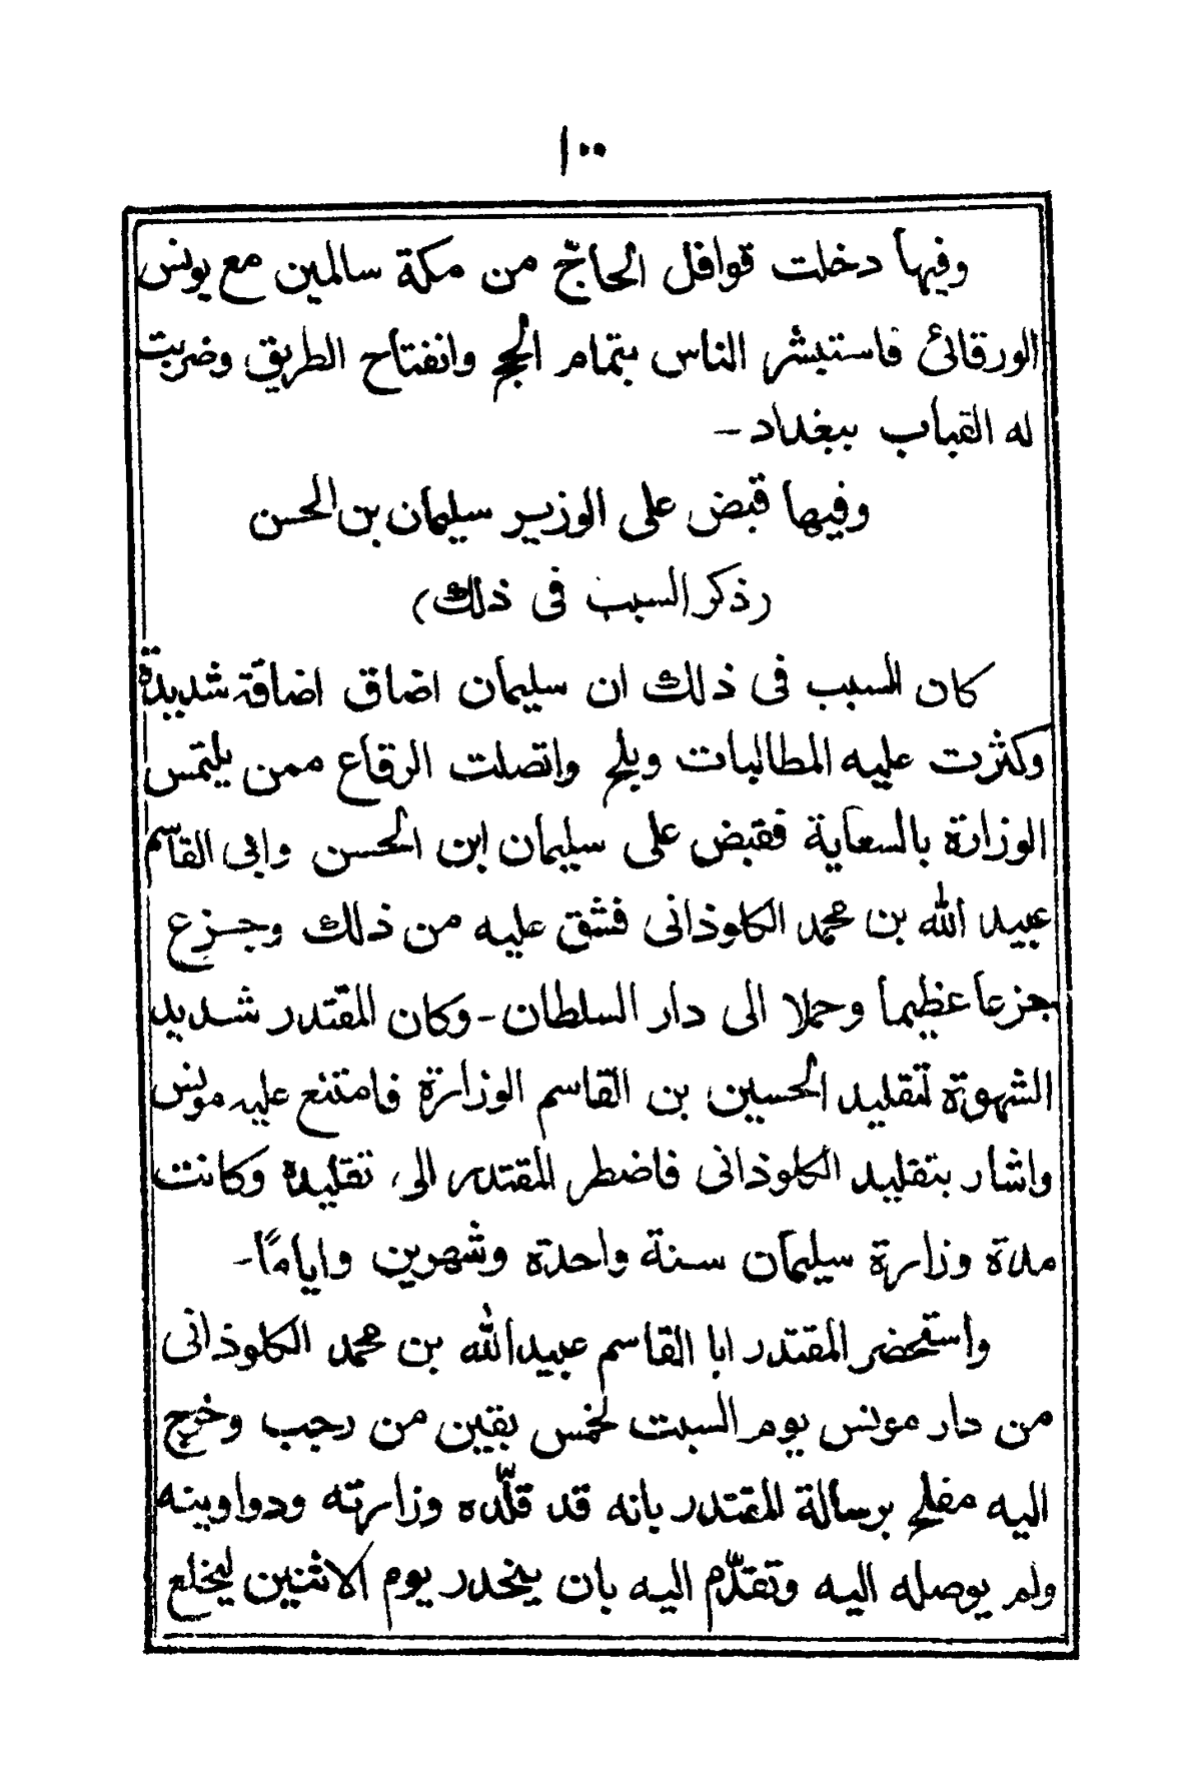 ١٠٠
وفيها دخلت قوافل الحاجّ من مكة سالمين مع يونس
الورقائ فاستبشر الناس بتمام الحج وانفتاح الطريق وضربت
له القباب ببغداد –
وفيها قبض على الوزير سليمان بن الحسن
(ذكر السبب فى ذلك)
كان السبب فى ذلك ان سليمان اضاق اضاقة شديدة
وكثرت عليه المطالبات وبلح واتصلت الرقاع ممن يلتمس
الوزارة بالسعاية فقبض على سليمان ابن الحسن وابى القاسم
عبيد الله بن محمد الكلوذانى فشق عليه من ذلك وجزع
جزعا عظيما وحملا الى دار السلطان – وكان المقتدر شديد
الشهوة لتقليد الحسين بن القاسم الوزارة فامتنع عليه مونس
واشار بتقليد الكلوذانى فاضطر المقتدر الى تقليدة وكانت
مدة وزارة سليمان سنة واحدة وشهرين واياما –
واستحضر المقتدر ابا القاسم عبيد الله بن محمد الكلوذانى
من دار مونس يوم السبت لخمس بقين من رجب وخرج
اليه مفلح برسالة المقتدر بانه قد قلّده وزارته ودواوينه
ولم يوصله اليه وتقدّم اليه بان ينحدر يوم الاثنين ليخلع